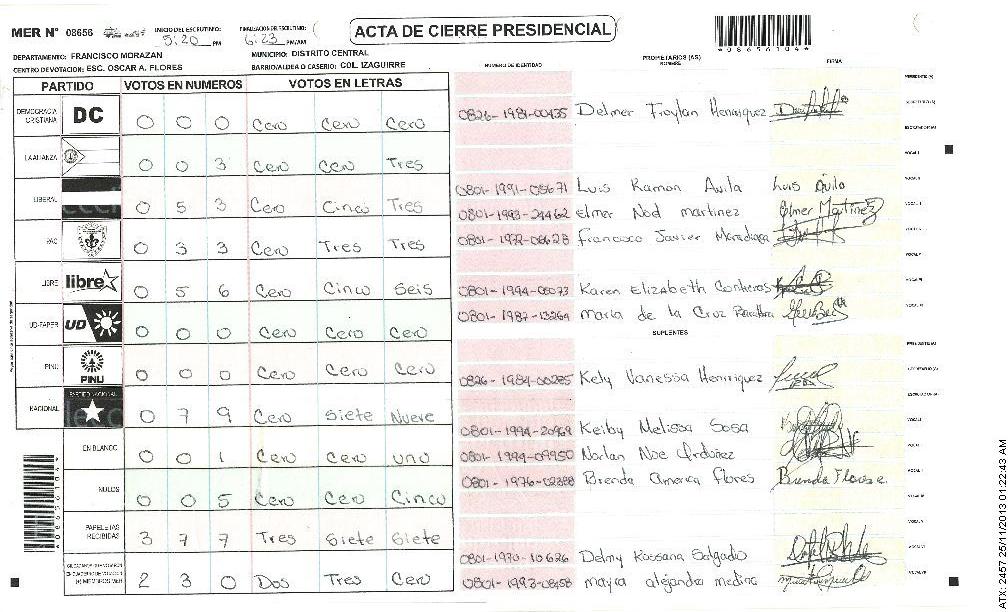 MER N° 08656 INICIO DEL ESCRUTINIO: 5:20 PM FINALIZACION DEL ESCRUTINIO: 6:23 PM/AM
ACTA DE CIERRE PRESIDENCIAL
*08656104*
DEPARTAMENTO: FRANCISCO MORAZAN MUNICIPIO: DISTRITO CENTRAL
CENTRO DE VOTACION: ESC. OSCAR A. FLORES BARRIO/ALDEA O CASERIO: COL. IZAGUIRRE
PARTIDO VOTOS EN NUMEROS VOTOS EN LETRAS NUMERO DE IDENTIDAD PROPIETARIOS (AS) NOMBRE FIRMA
DEMOCRACIA CRISTIANA DC 0 0 0 Cero Cero Cero
LA ALIANZA 0 0 3 Cero Cero Tres
LIBERAL 0 5 3 Cero Cinco Tres
PAC 0 3 3 Cero Tres Tres
LIBRE libre 0 5 6 Cero Cinco Seis
UD-FAPER UD 0 0 0 Cero Cero Cero
PINU PINU 0 0 0 Cero Cero Cero
NACIONAL PARTIDO NACIONAL 0 7 9 Cero Siete Nueve
EN BLANCO 0 0 1 Cero Cero uno
NULOS 0 0 5 Cero Cero Cinco
PAPELETAS RECIBIDAS 3 7 7 Tres Siete Siete
2 3 0 Dos Tres Cero
0826-1981-00435 Delmer Froylan Henriquez
0801-1991-05671 Luis Ramon Avila Luis Avila
0801-1993-24462 elmer Nod martinez Elmer Martinez
0801-1972-06628 francisco Javier
0801-1994-05073 Karen Elizabeth Contreras
0801-1987-13264 maria de la Cruz
SUPLENTES
0826-1984-00285 Kely Vanessa Henrriquez
0801-1994-20969 Keiby Melissa Sosa
0801-1994-09950 Norlan Noe Ordoñez
0801-1976-02388 Brenda America Flores Brenda Flores
0801-1970-10626 Delmy Rossana Salgado
0801-1993-08458 mayra alejandra medina
ATX: 2457 25/11/2013 01:22:43 AM